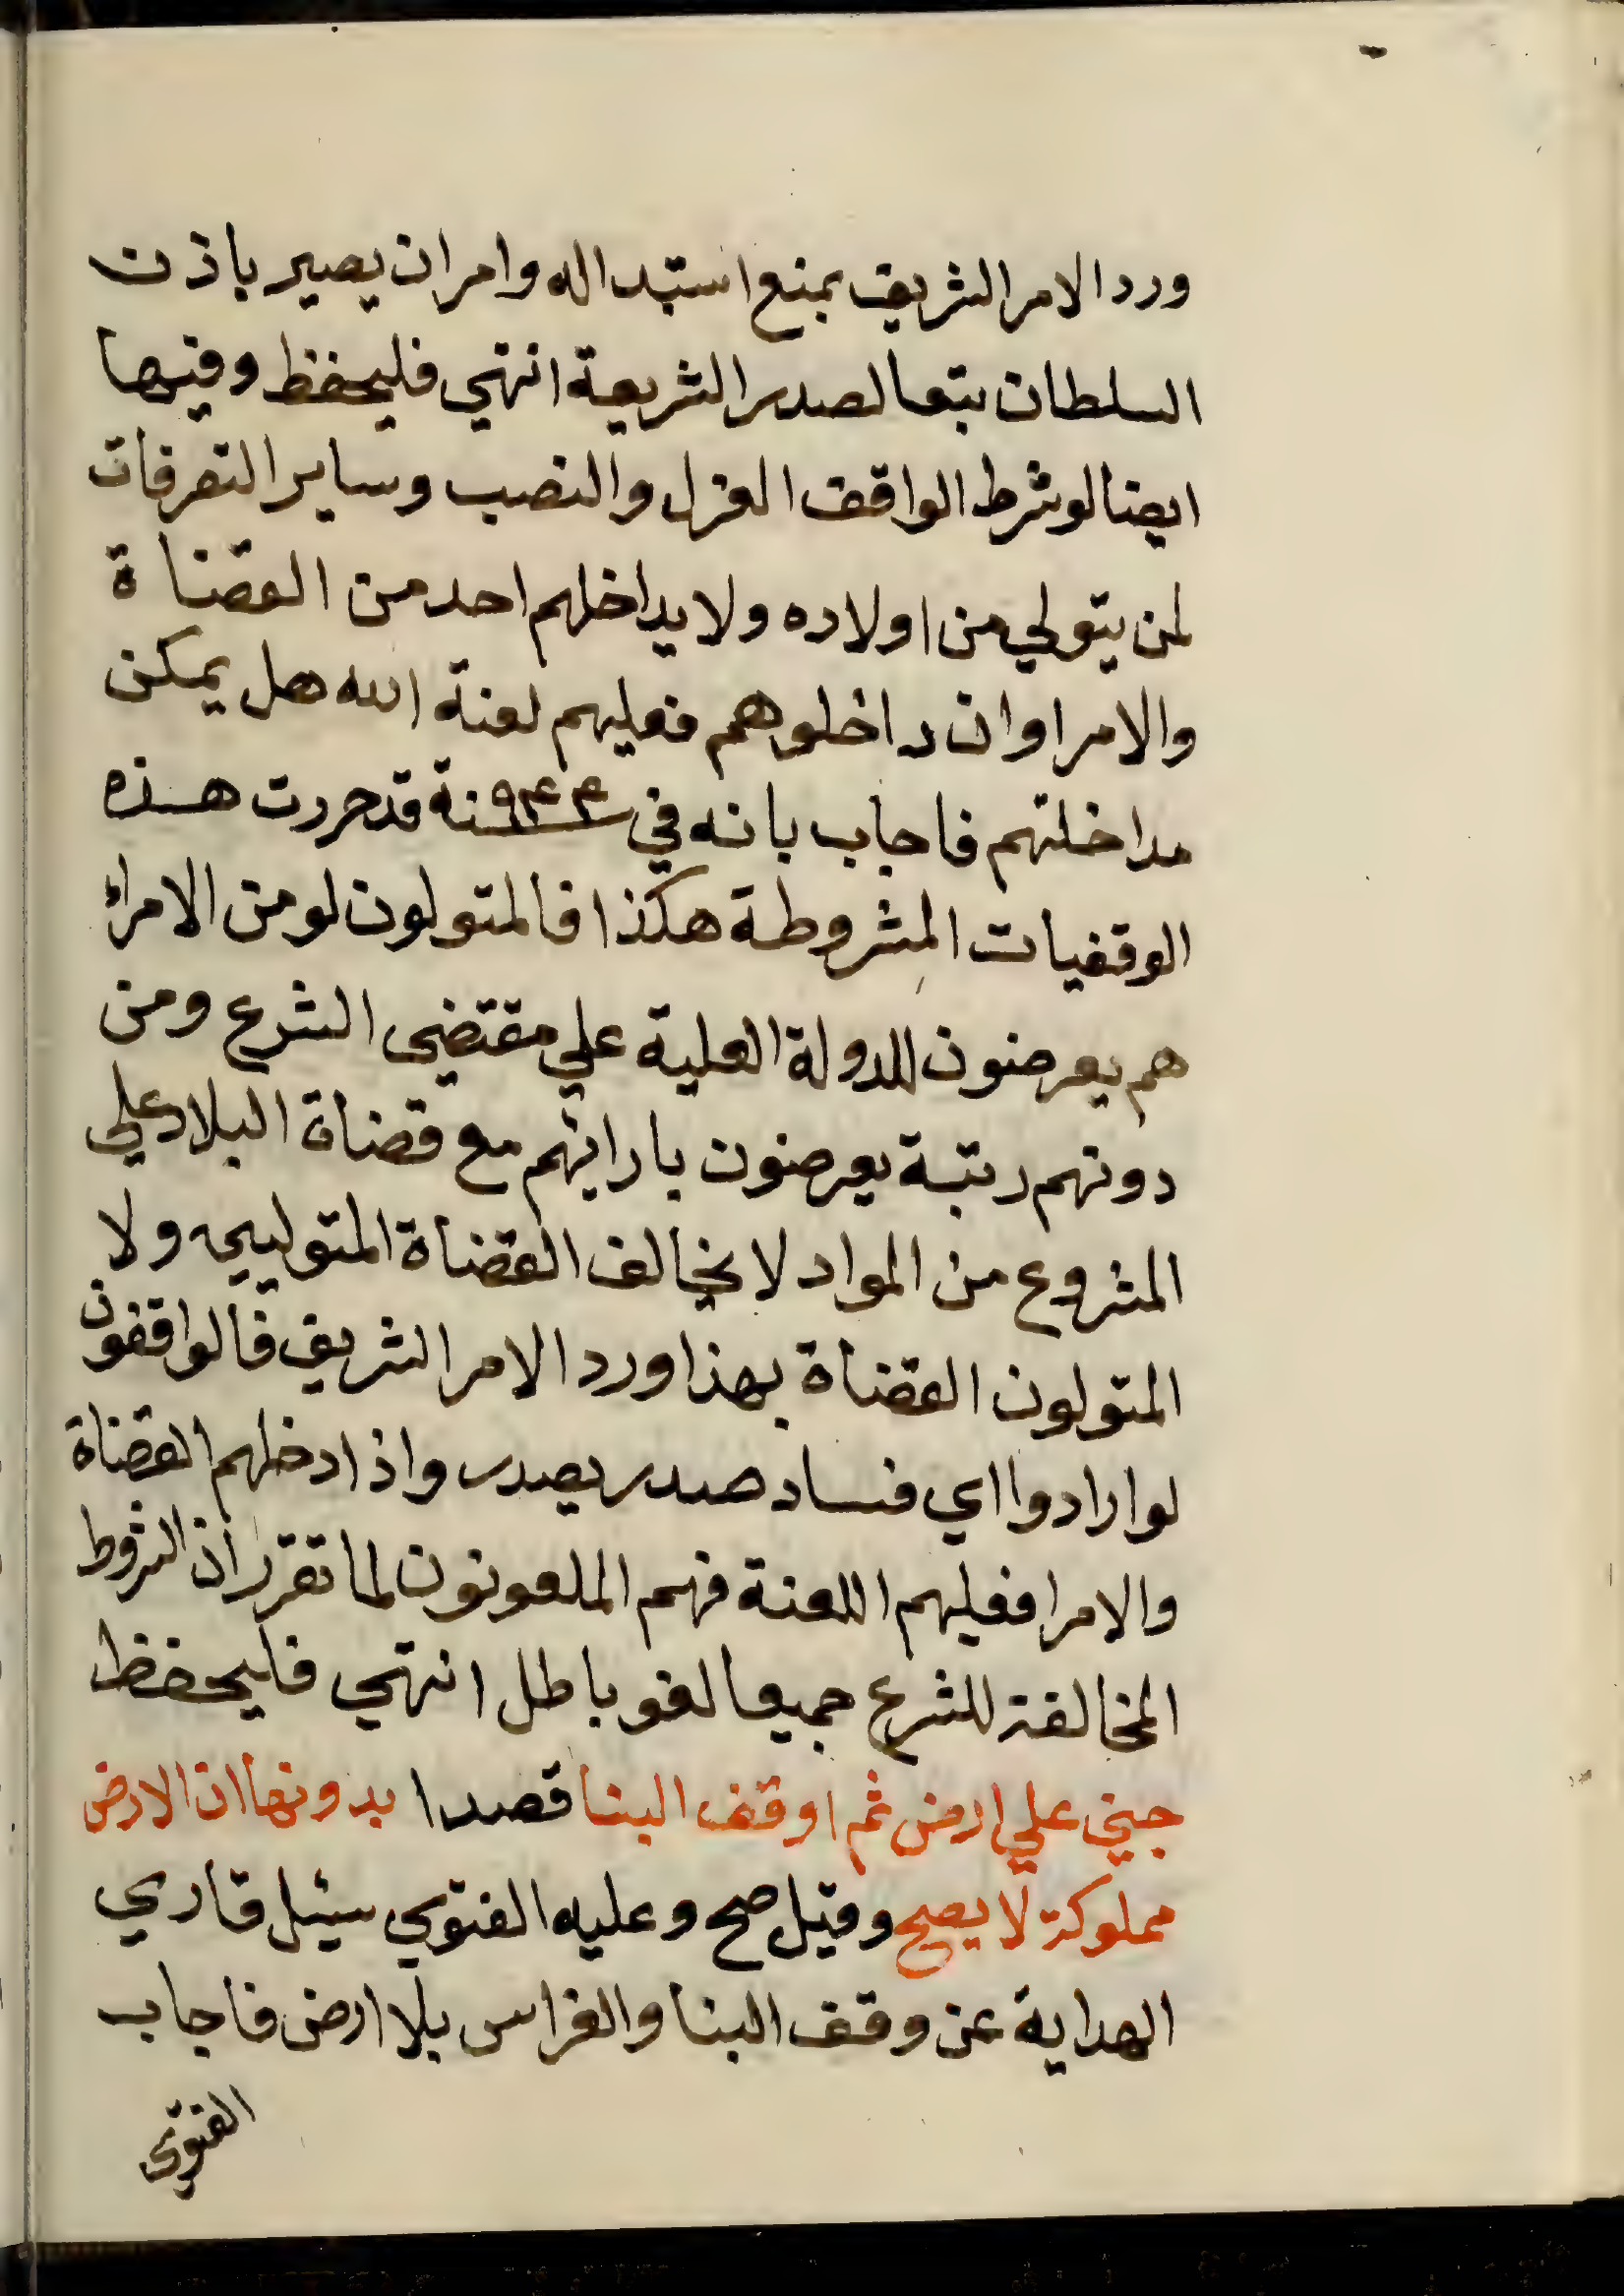 ورد الامر الشريف بمنع استبداله وامر ان يصير باذن
السلطان بتعا لصدر الشريعة انتهي فليحفظ وفيها
ايضا لو شرط الواقف العزل والنصب وساير التصرفات
لمن يتولي من اولاده ولا يداخلهم احد من القضاة
والامرا وان داخلوهم فعليهم لعنة الله هل يمكن
مداخلتهم فاجاب بانه في سنة ٩٤٤ قد حررت هذه
الوقفيات المشروطة هكذا فالمتولون لو من الامراء
هم يعرضون للدولة العلية علي مقتضي الشرع ومن
دونهم رتبة يعرضون بارائهم مع قضاة البلاد علي
المشروع من المواد لا يخالف القضاة المتوليين ولا
المتولون القضاة بهذا ورد الامر الشريف فالواقفون
لو ارادوا اي فساد صدر يصدر واذا دخلهم القضاة
والامرا فعليهم اللعنة فهم الملعونون لما تقرر ان الشروط
المخالفة للشرع جميعا لغو باطل انتهي فليحفظ
جبني علي ارض ثم اوقف البنا قصدا بدونها ان الارض
مملوكة لا يصح وقيل صح وعليه الفتوي سئيل قاري
الهداية عن وقف البنا والغراس بلا ارض فاجاب
الفتوي